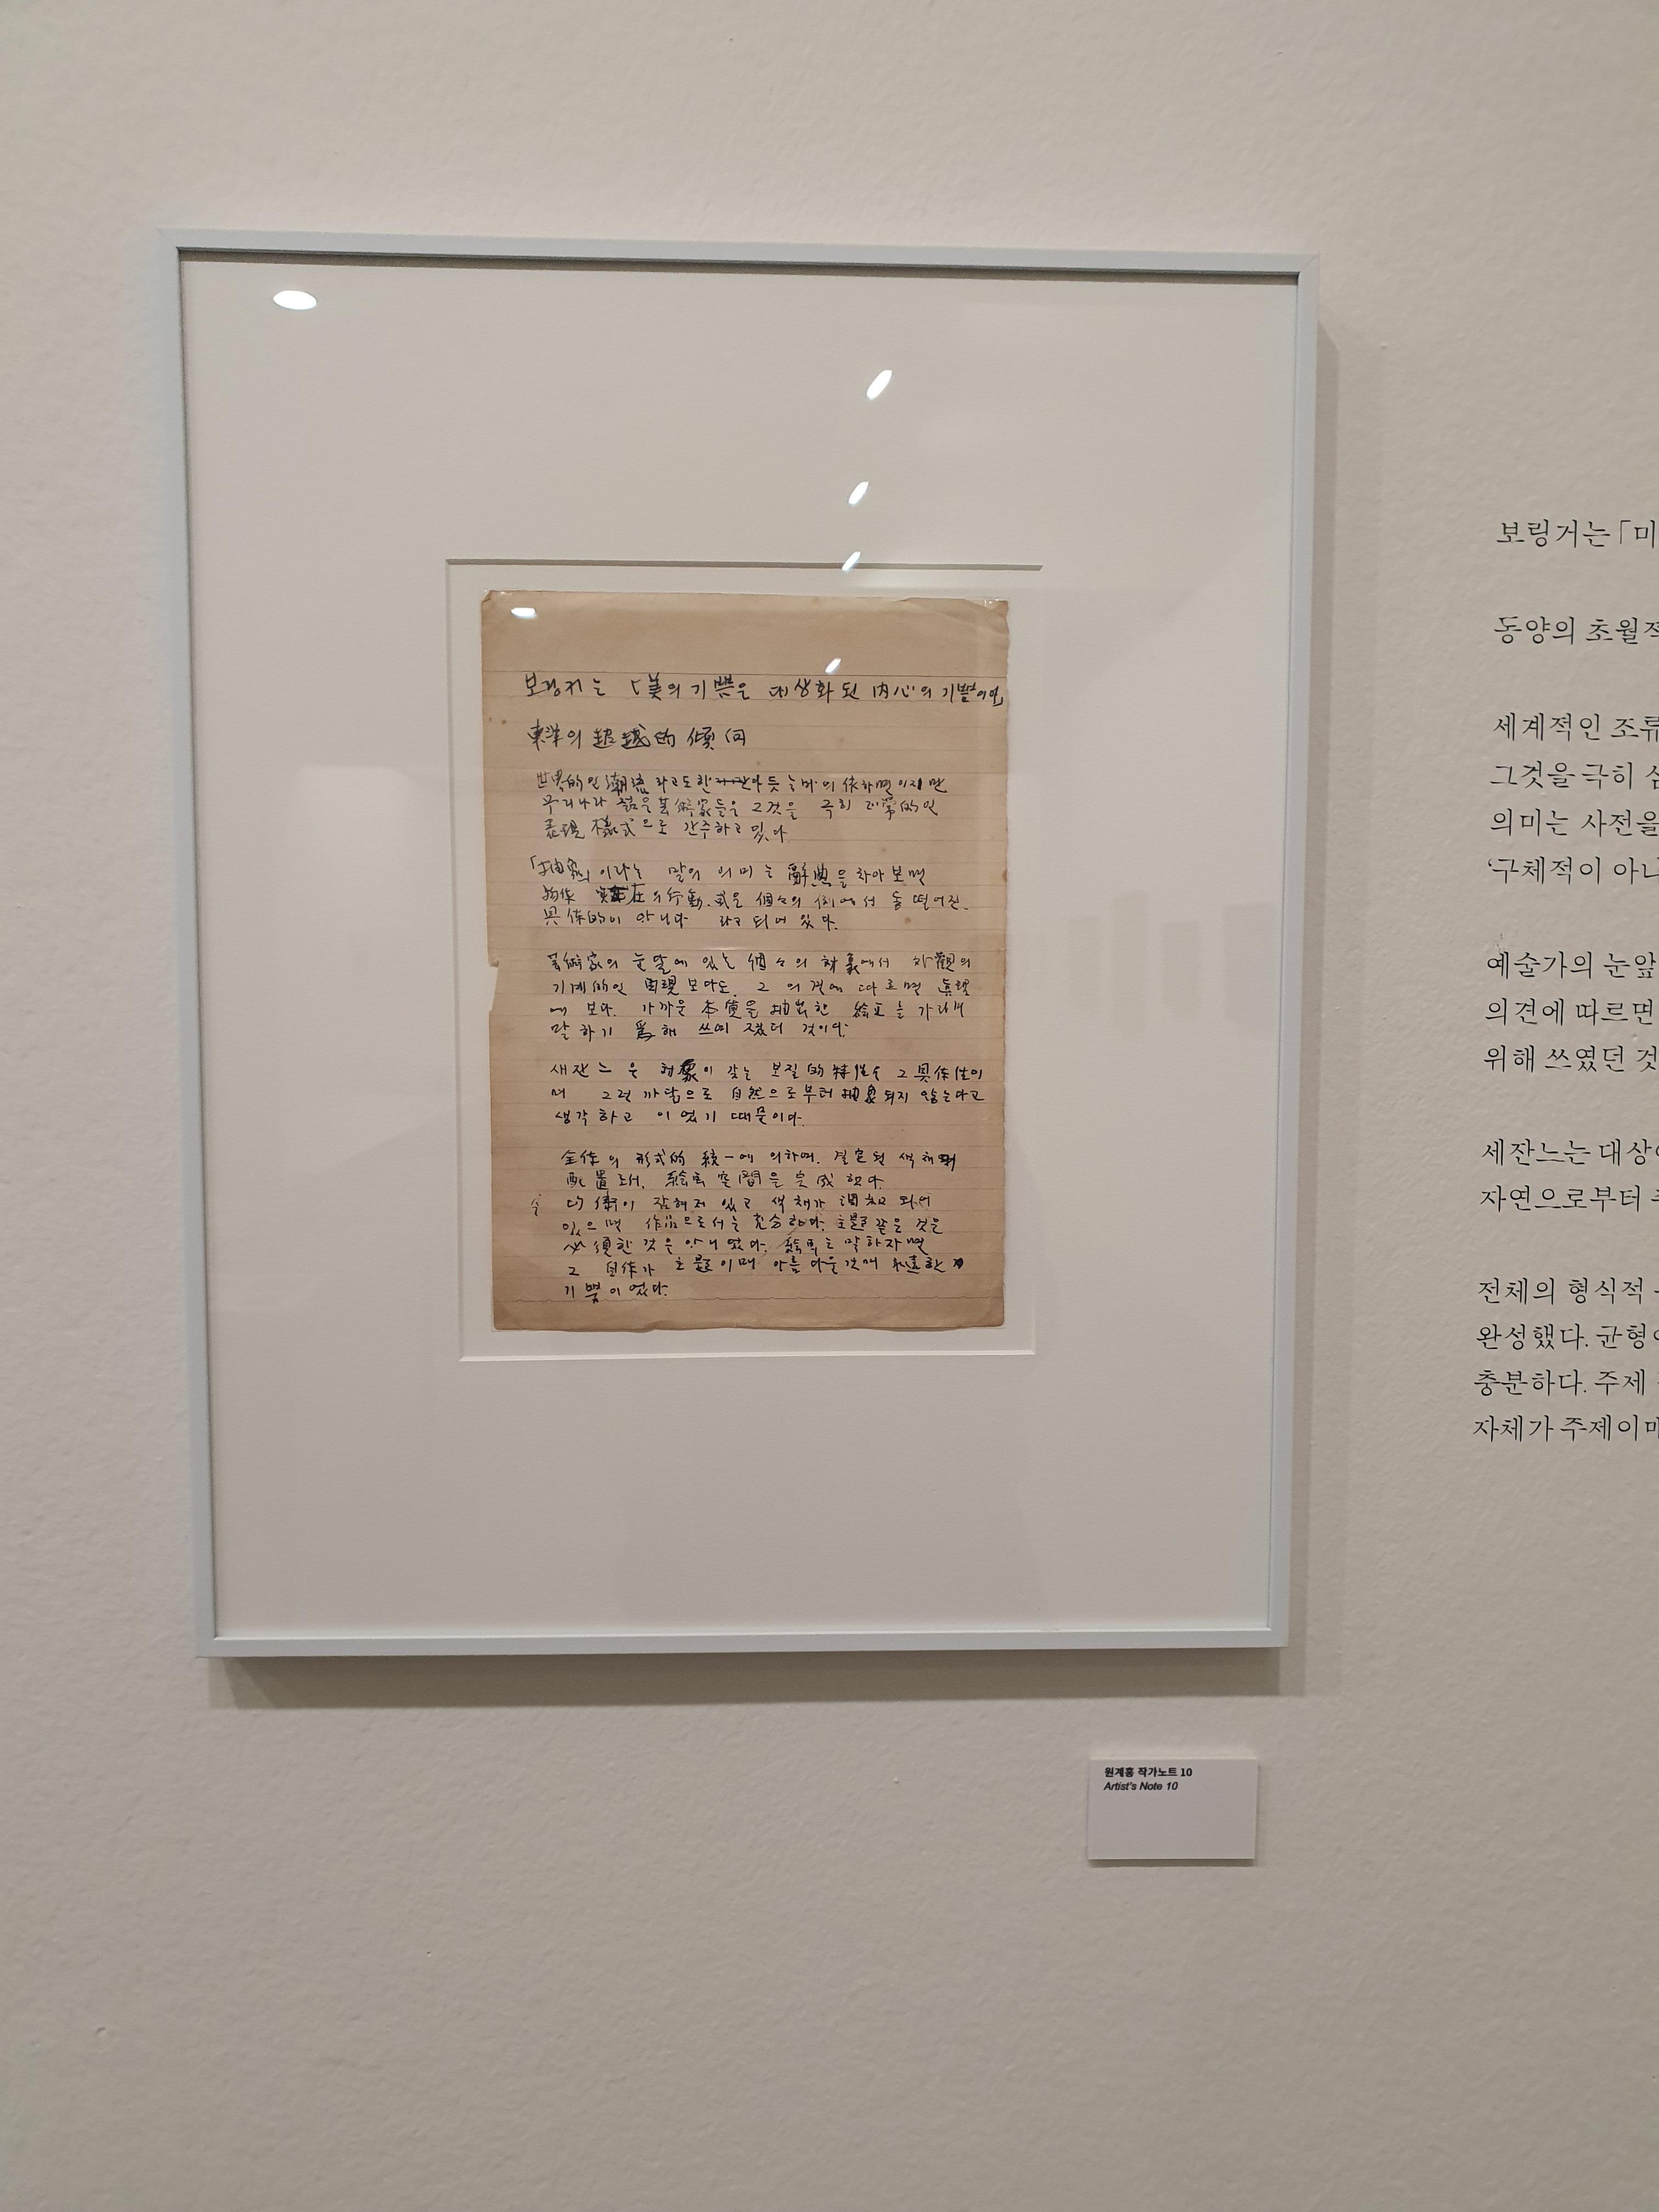 보링거는 「美의 기쁨은 대상화된 內心의 기쁨이며
東洋의 超越的 傾向
世界的인 潮流라고도 한 듯 는 의 依하면이지만
우리나라 젊은 芸術家들은 그것을 극히 的인
表現 樣式으로 간주하고 있다.
「抽象」이라는 말의 의미는 辭典을 차아보면
物体 実在의 行動. 或은 個々의 例에서 동떨어진.
具体的이 아니다 라고 되어 있다.
芸術家의 눈앞에 있는 個々의 対象에서 外觀의
기계的인 再現보다도. 그 의견에 따르면 眞理
에 보다. 가까운 本質을 抽出한 絵画를 가리켜
말하기 爲해 쓰여졌던 것이다.
새잔느은 対象이 갖는 보질的 特性은 그 具体性이
며 그런 까닭으로 自然으로부터 抽象되지 않는다고
생각하고 이었기 때문이다.
全体의 形式的 統一에 의하여. 결정된 색채의
配置로서. 絵画 空間을 完成했다.
均衡이 잡혀저 있고 색채가 調和되어
있으면 作品으로서는 充分하다. 主題같은 것은
必須한 것은 아니었다. 絵画로 말하자면
그 自体가 主題이며 아름다운 것에 永遠한
기쁨이었다.
보링거는 「미
동양의 초월적
세계적인 조류
그것을 극히 심
의미는 사전을
'구체적이 아니
예술가의 눈앞
의견에 따르면
위해 쓰였던 것
세잔느는 대상
자연으로부터
전체의 형식적
완성했다. 균형이
충분하다. 주제
자체가 주제이며
원계홍 작가노트 10
Artist's Note 10